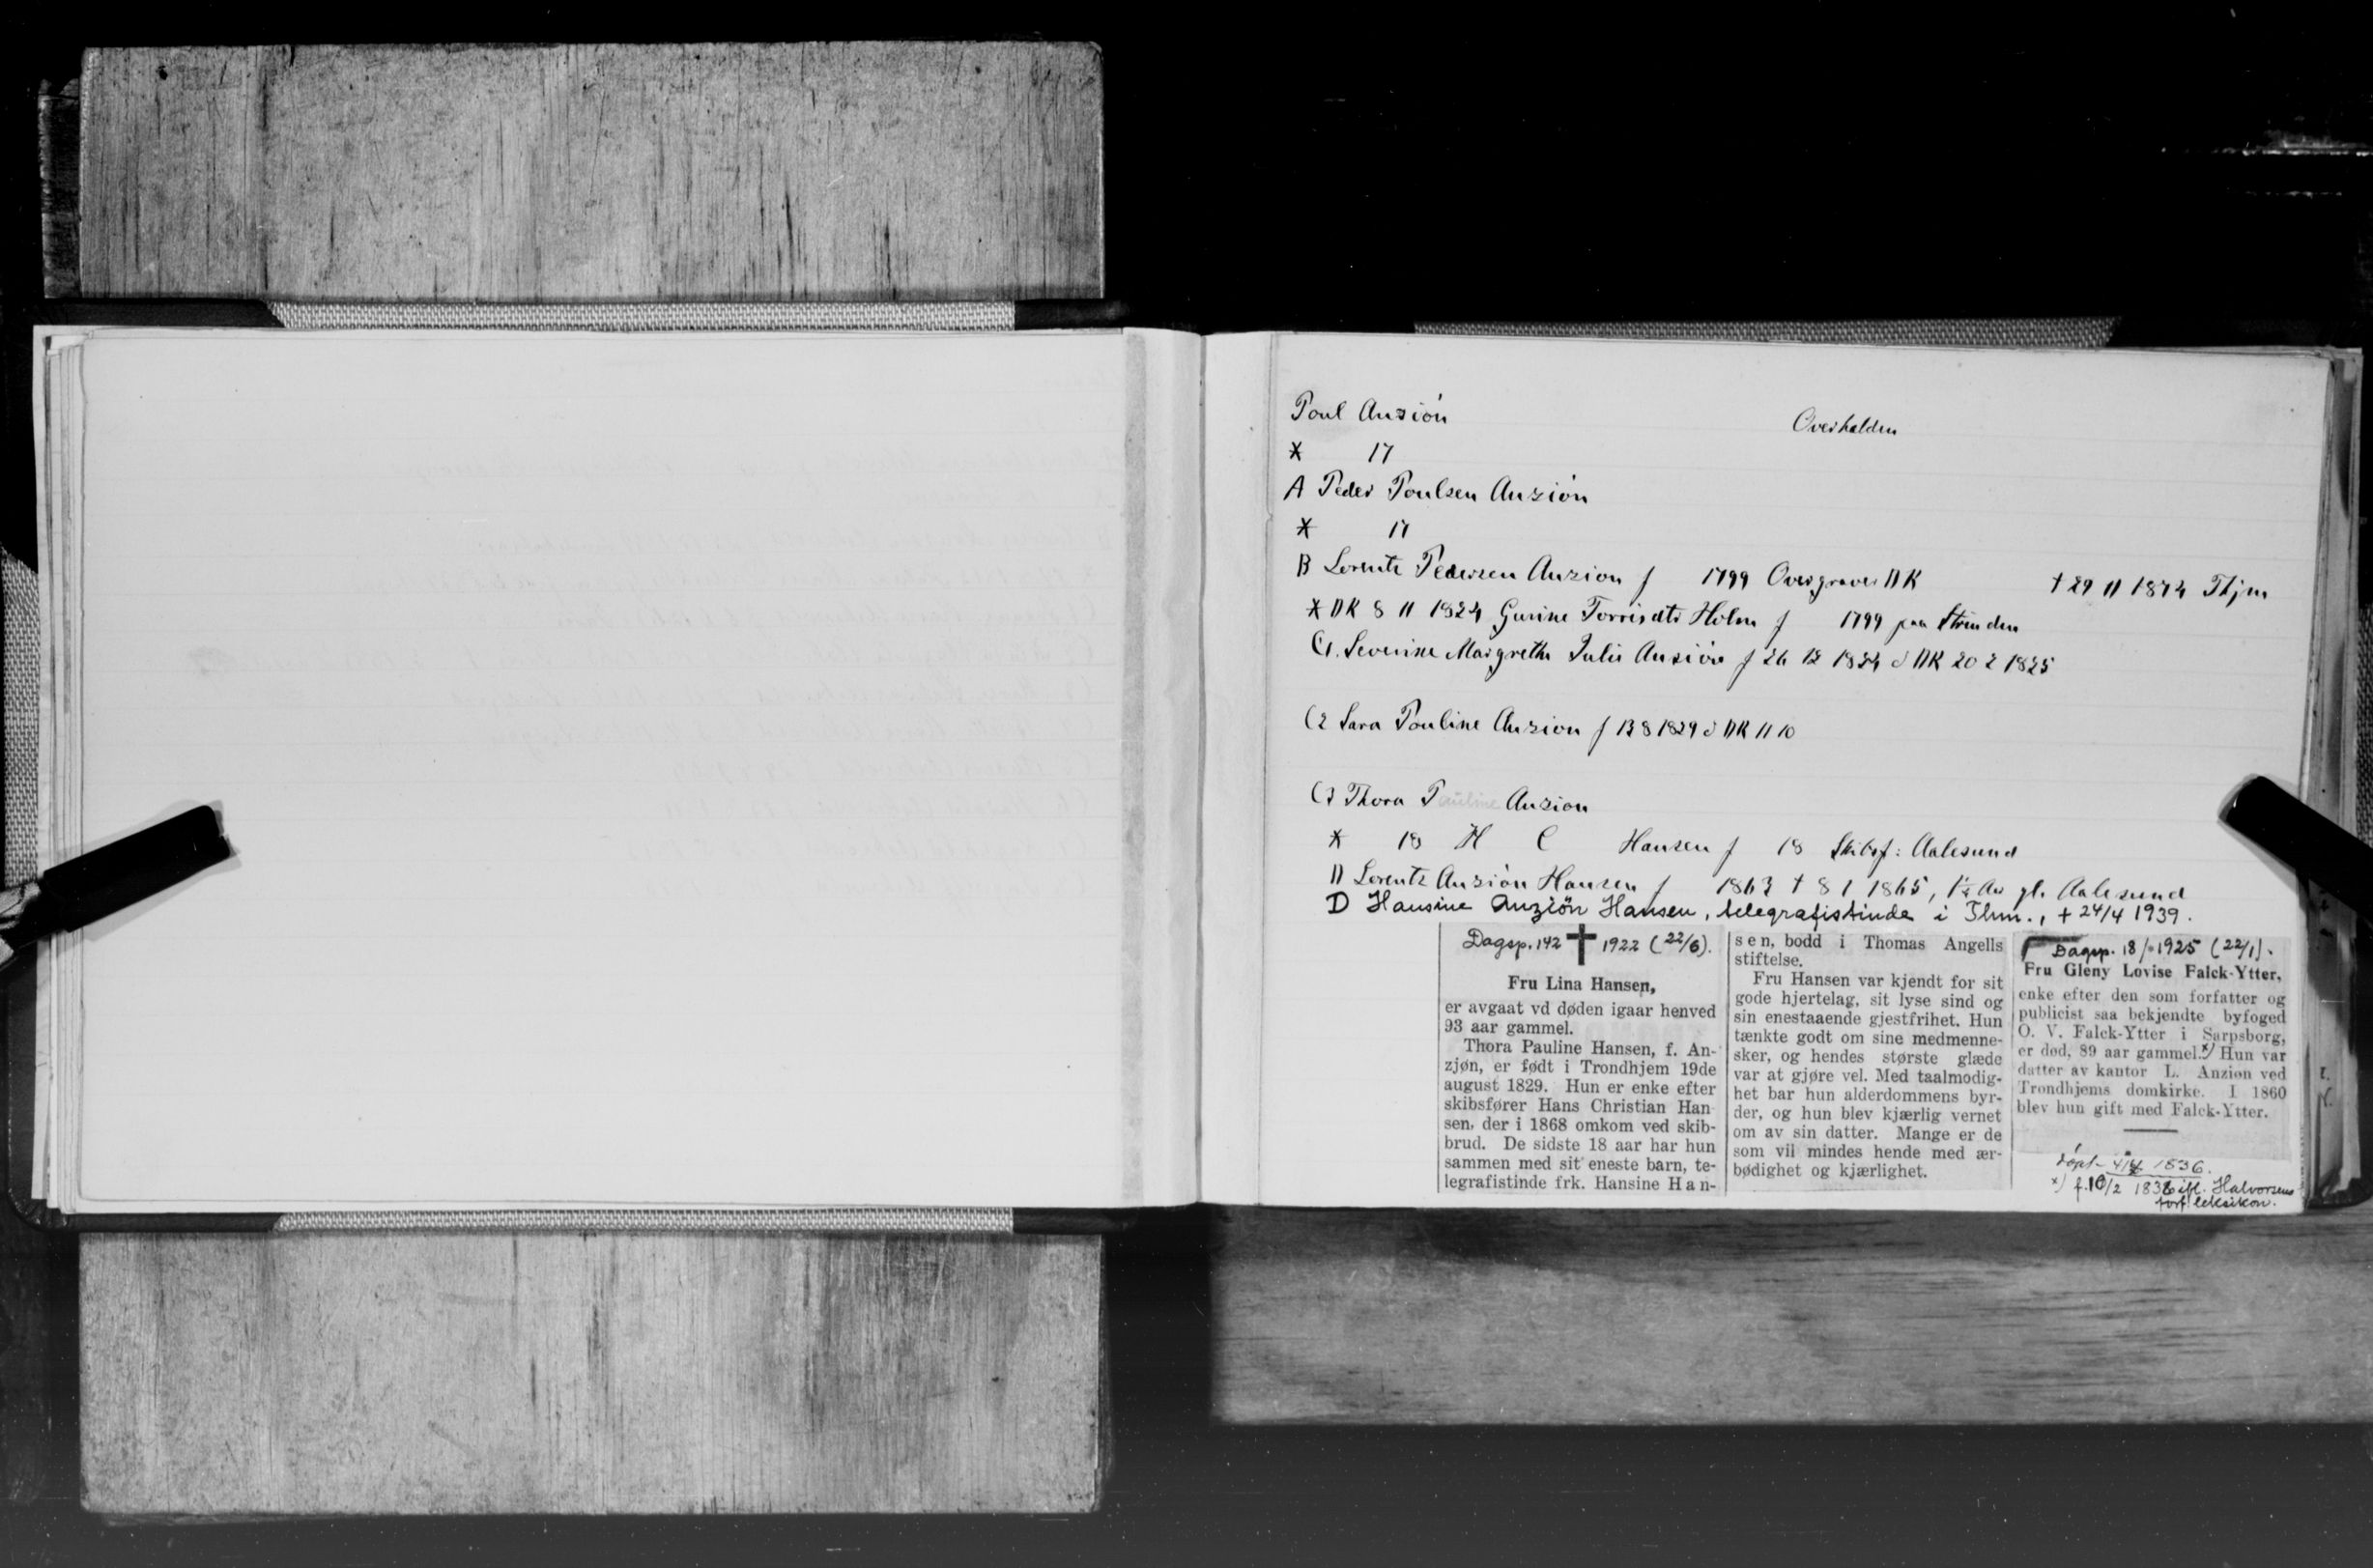 Poul Anzión
Overhalden
* 17
A Peder Poulsen Anzión
* 17
B Lorentz Pedersen Anzion f 1799 Overgraver DK † 29 11 1874 Thjm
* DK 8 11 1824 Gurine Torrisdtr Holm f 1799 paa Strinden
C1. Severine Margrethe Julie Anzión f 26 12 1824 d DK 20 2 1825
C2 Sara Pouline Anzion f 13 8 1829 d DK 11 10
C3 Thora Pauline Anzion
* 18 H C Hansen f 18 Skibsf: Aalesund
D Lorentz Anzión Hansen f 1863 † 8 1 1865, 1½ Aar gl. Aalesund
D Hansine Anziön Hansen, telegrafistinde i Thm., † 24/4 1939.
Dagsp. 142 † 1922 (22/6).
Fru Lina Hansen,
er avgaat vd døden igaar henved
93 aar gammel.
Thora Pauline Hansen, f. An-
zjøn, er født i Trondhjem 19de
august 1829. Hun er enke efter
skibsfører Hans Christian Han-
sen, der i 1868 omkom ved skib-
brud. De sidste 18 aar har hun
sammen med sit eneste barn, te-
legrafistinde frk. Hansine Han-
sen, bodd i Thomas Angells
stiftelse.
Fru Hansen var kjendt for sit
gode hjertelag, sit lyse sind og
sin enestaaende gjestfrihet. Hun
tænkte godt om sine medmenne-
sker, og hendes største glæde
var at gjøre vel. Med taalmodig-
het bar hun alderdommens byr-
der, og hun blev kjærlig vernet
om av sin datter. Mange er de
som vil mindes hende med ær-
bødighet og kjærlighet.
Dagsp. 18/ 1925 (22/1).
Fru Gleny Lovise Falck-Ytter,
enke efter den som forfatter og
publicist saa bekjendte byfoged
O. V. Falck-Ytter i Sarpsborg,
er død, 89 aar gammel.x) Hun var
datter av kantor L. Anzion ved
Trondhjems domkirke. I 1860
blev hun gift med Falck-Ytter.
døpt 4/4 1836.
x) f. 10/2 1836 ifl. Halvorsens
forf. leksikon.